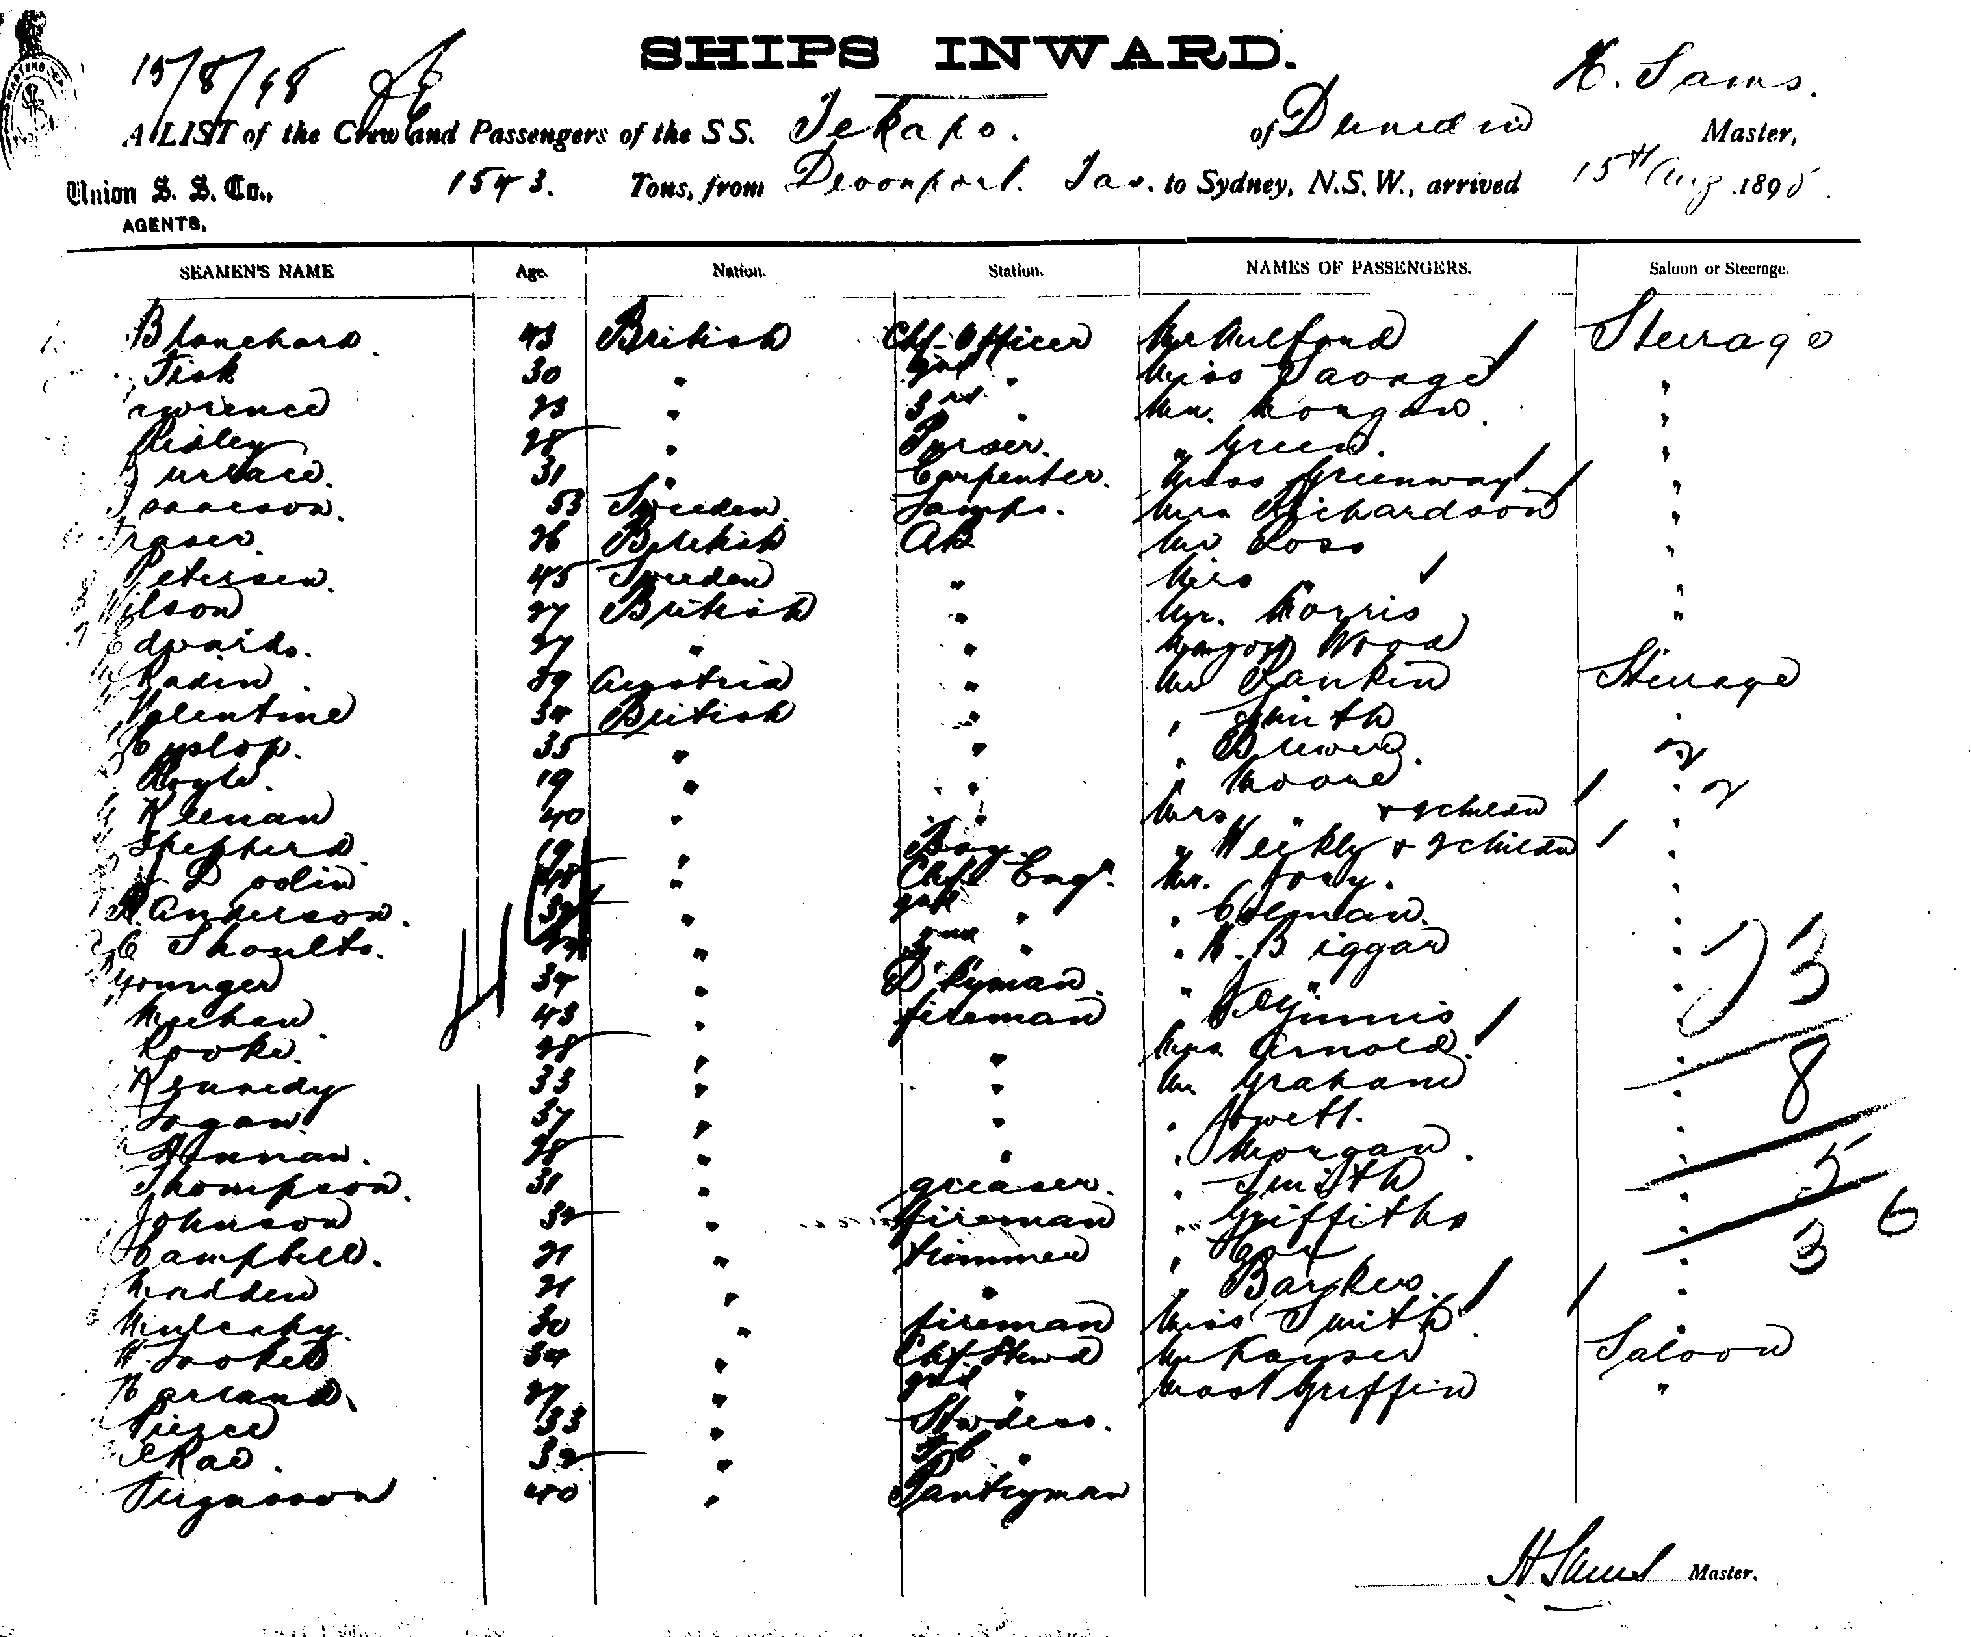 15/8/98
SHIPS INWARD.
H. Sams.
A LIST of the Crew and Passengers of the SS. Tekapo. of Dunedin Master,
Union S. S. Co., 1543. Tons, from Devonport. Tas. to Sydney, N.S.W., arrived 15th Aug 1898.
AGENTS,
SEAMEN'S NAME Age. Nation. Station. NAMES OF PASSENGERS. Saloon or Steerage.
Blanchard. 43 British Chf. Officer Mr Mulford Steerage
Fisk 30 " 2nd " Miss "
awrence 23 " 3rd " Mr. Morgan. "
Risley 28 " Purser. " Green. "
31 " Carpenter. Miss Greenway. "
Isaacson. 53 Sweden. Lamps. Mrs Richardson "
Fraser. 26 British AB Mr Ross "
Petersen. 45 Sweden " Mrs " "
Wilson 27 British " Mr. Norris "
Edwards. 27 " " Wood
Radin 39 Austria " Mr Rankin Steerage
Valentine 34 British " " Smith "
Hyslop. 35 " " " Brewer. "
Royle. 19 " " " Moore "
Keenan 40 " " Mrs " & 2 childn "
Shepherd. 19 " Boy " Weekly & 2 childn "
Dodin " Chf. Engr. Mr. Jory. "
R. Anderson. " 2nd " " Coleman. "
C Shoults. " " " H. Biggar "
Younger 34 " D'kyman. " J. " "
Meehan 43 " fireman " "
Rooke. 28 " " Mrs Arnold. "
Kennedy 33 " " Mr Graham "
Logan 37 " " " Jowett. "
28 " " " Morgan. "
Thompson. 31 " greaser. " Smith "
Johnson 32 " fireman " Griffiths "
Campbell. 21 " trimmer " Cox "
Madden 21 " " " Barker "
Mulcahy. 30 " fireman Miss Smith "
H. Hooker 34 " Chf. Stewd Mr Kayser Saloon
Harland. 27 " 2nd " Mast Griffin "
Pierce 33 " Stwdess.
32 " "
Fergusson 40 " Pantryman
73
8
5
3 6
H Sams Master.